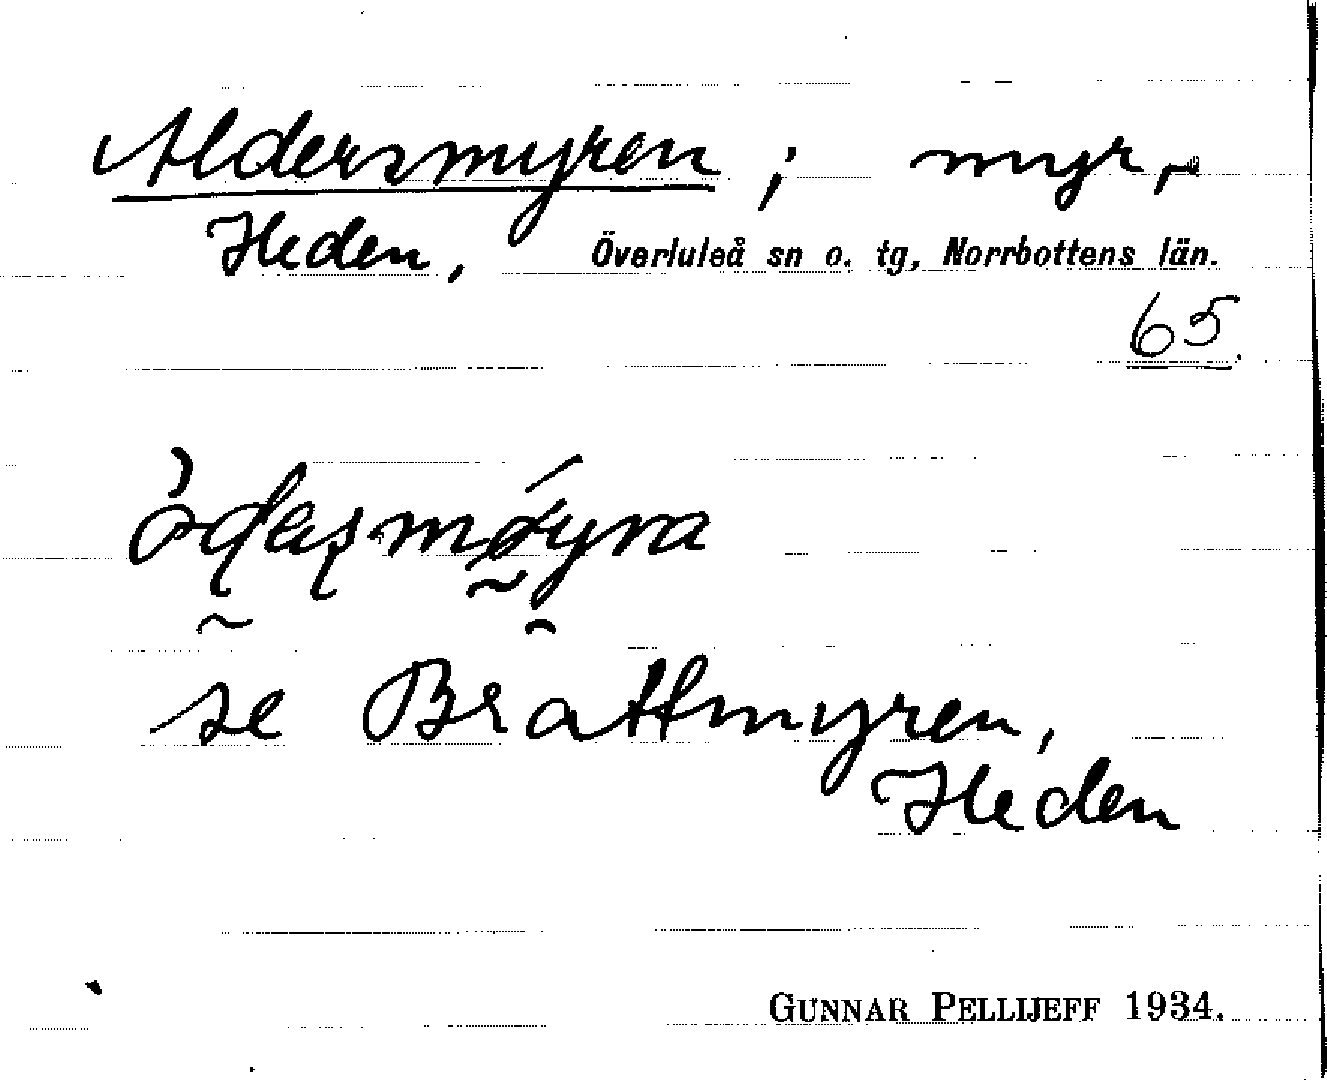 Aldersmyren; myr,
Heden, Överluleå sn o. tg, Norrbottens län.
65.
se Brattmyren,
Heden
GUNNAR PELLIJEFF 1934.